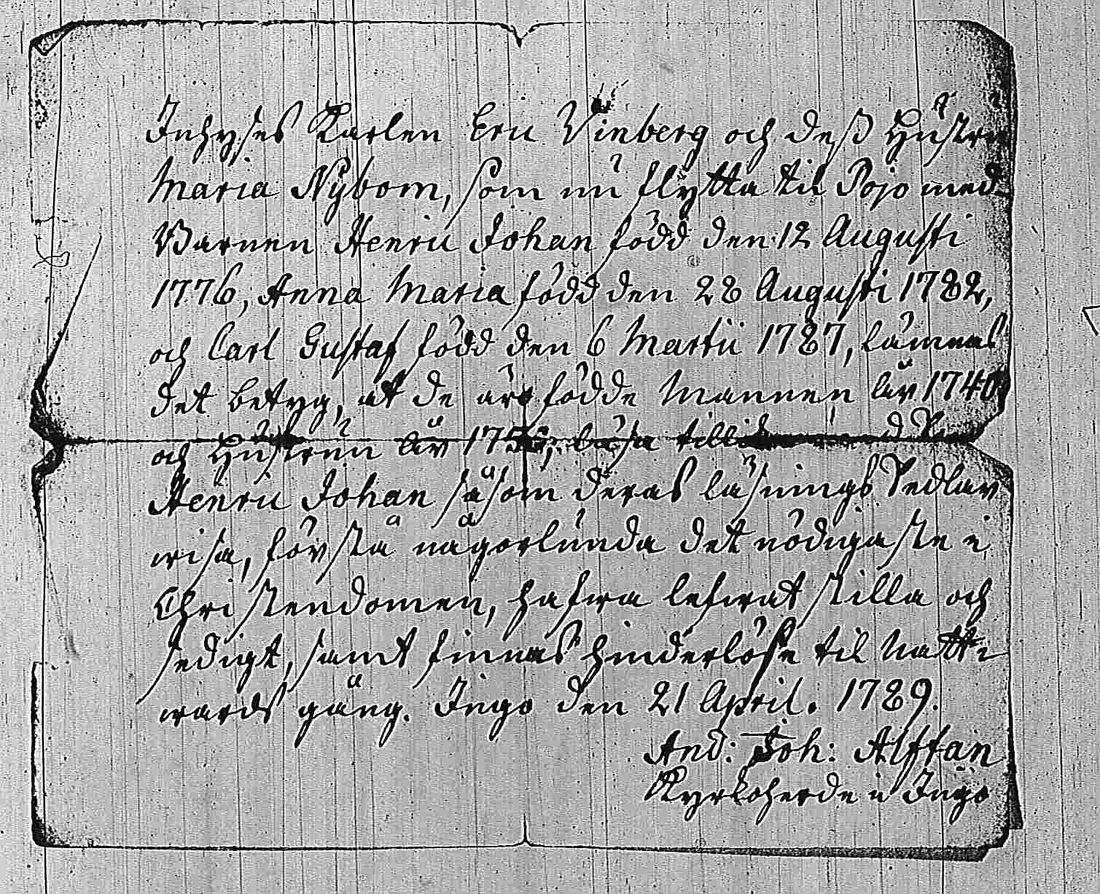 Inhyses Karlen Eric Vinberg och deß Hustru
Maria Nybom, som nu flytta til Pojo med
Barnen Henric Johan född den 12 Augusti
1776, Anna Maria född den 28 Augusti 1782,
och Carl Gustaf född den 6 Martii 1787, lämnas
det betyg, at de äro födde Mannen år 1740
och Hustrun år läsa
Henric Johan såsom deras läsnings Sedlar
wisa, förstå någorlunda det nödigaste i
Christendomen, hafwa lefwat stilla och
sedigt, samt finnas hinderlöse til Natt-
wards gång. Ingo den 21 April. 1789.
And: Joh: Alftan
Kyrkoherde i Ingo